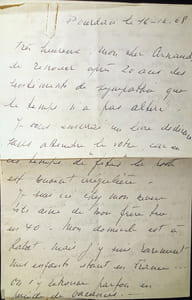 Pourdan le 16-12-68
Très heureuse mon cher Armand
de renouer après 20 ans des
sentiments de sympathie que
le temps n'a pas altéré.
J vous enverrai un livre dédicacé
sans attendre le vôtre, car en
ces temps de fêtes la poste
est souvent irrégulière.
Je suis ici chez mon
de mon frère
en 40. Mon domicile est à
Rabat mais j'y suis rarement
mes enfants étant en France
On s'y retrouve parfois en
période de vacances